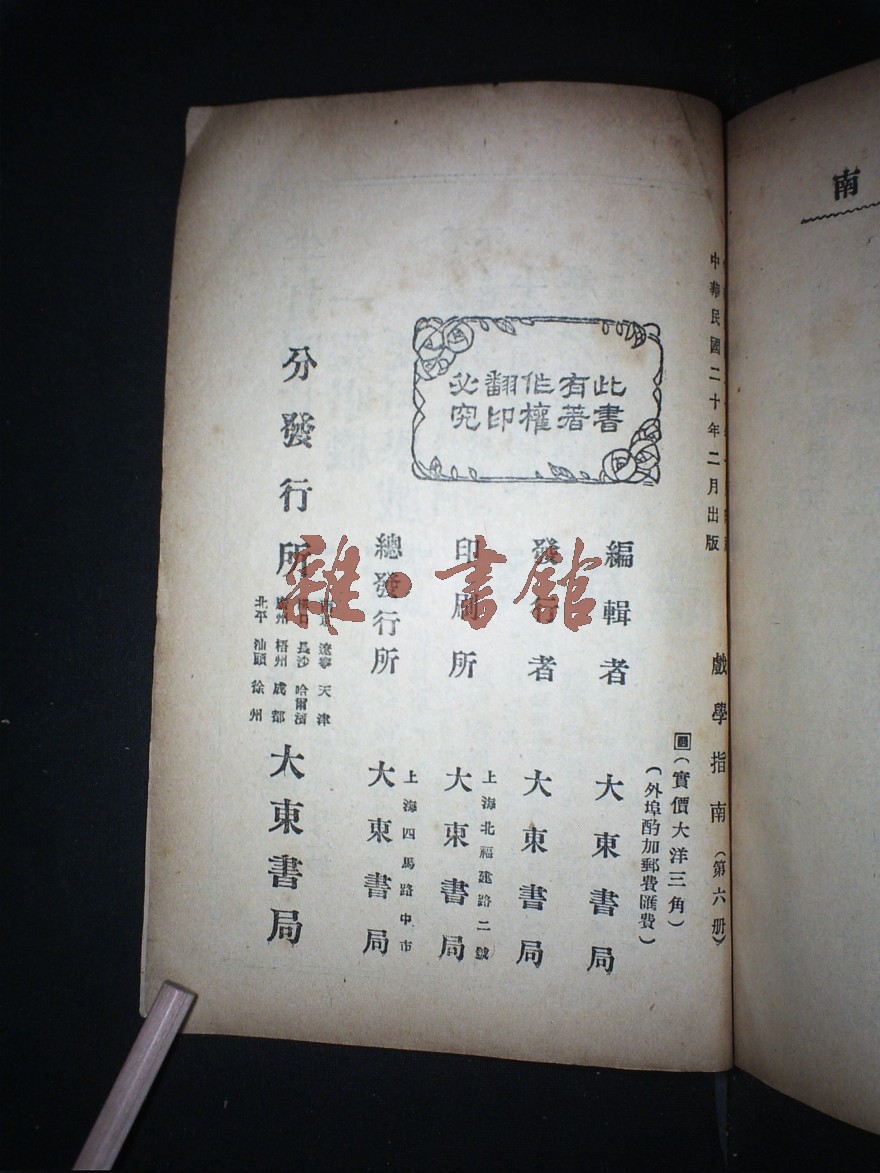 南
中華民國二十年二月出版
戲學指南（第六册）
（實價大洋三角）
（外埠酌加郵費匯費）
此書
有著
作權
翻印
必究
編輯者 大東書局
發行者 大東書局
上海北福建路二號
印刷所 大東書局
上海四馬路中市
總發行所 大東書局
分發行所
遼寧 天津
漢口 長沙 哈爾濱
廣州 梧州 成都
北平 汕頭 徐州
大東書局
雜·書館